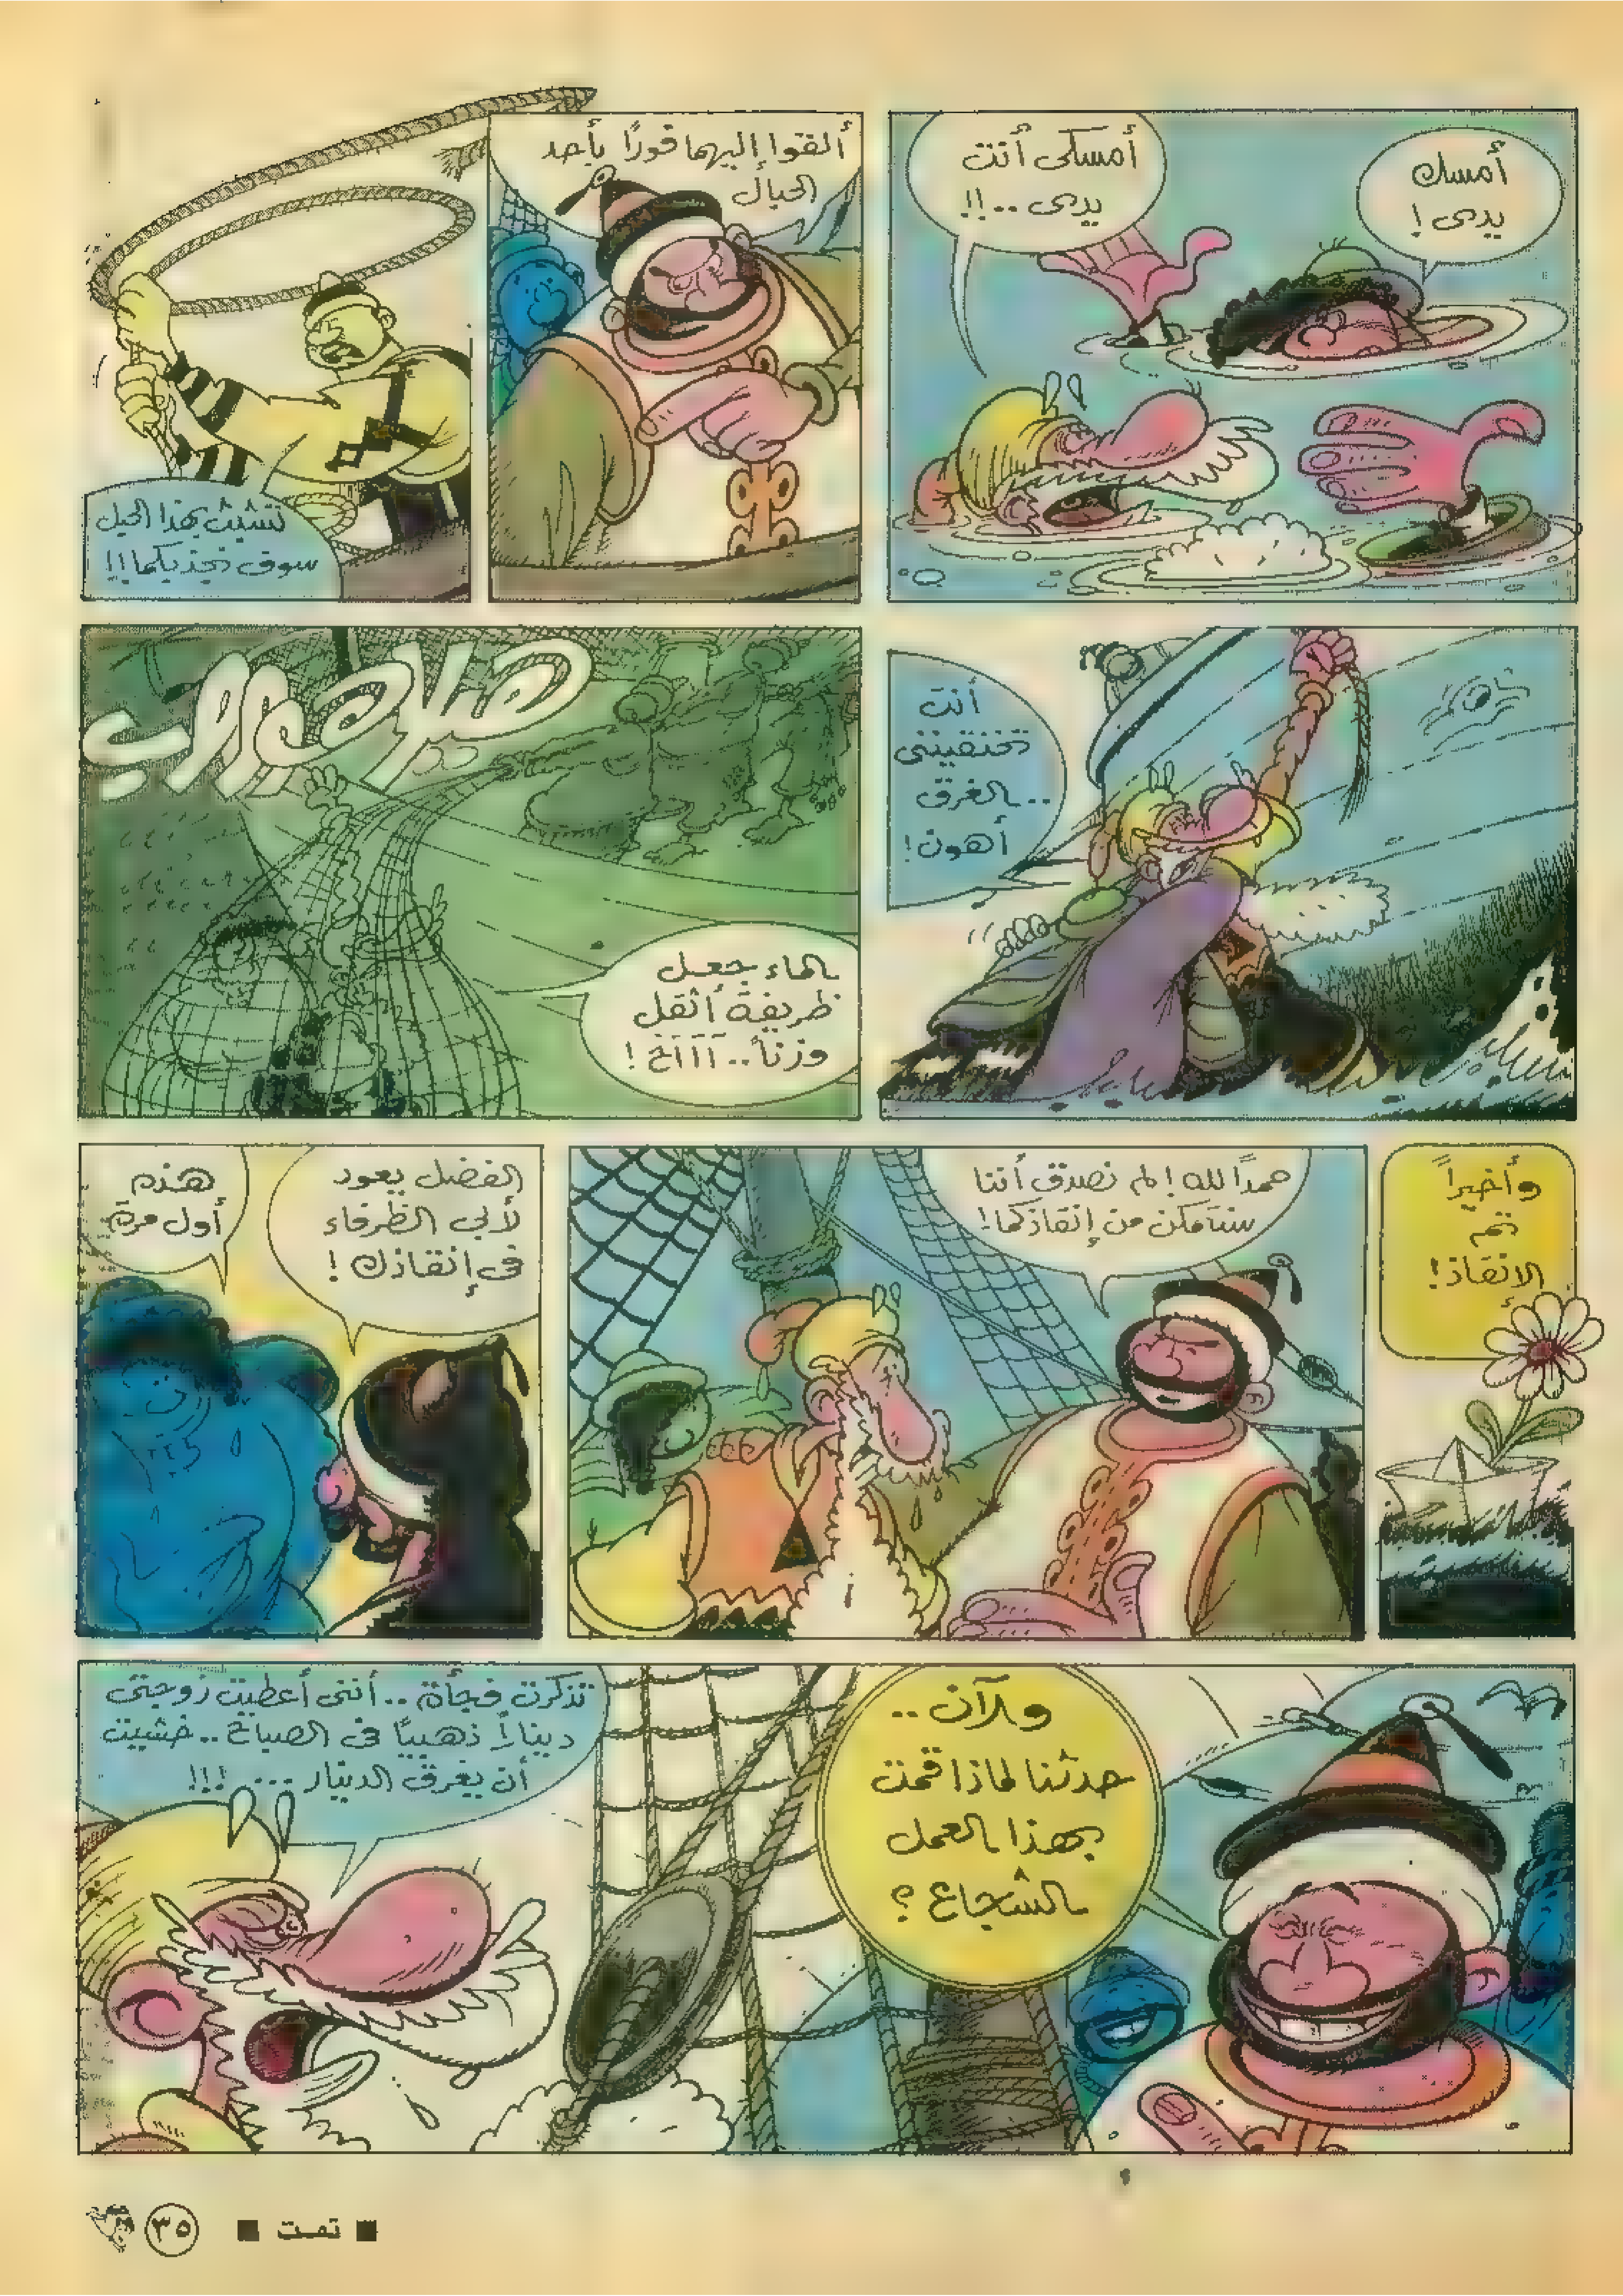 أمسك
يدى !
أمسكى أنت
يدى ..!!
ألقوا إليهما فورًا بأحد
الحبال
تشبث بهذا الحبل
سوف نجذبكما !!
أنت
تخنقيننى
.. الغرق
أهون !
هيلاهوب
الماء جعل
ظريفة أثقل
وزنًا .. آآآخ !
وأخيرًا
تم
الإنقاذ !
حمدًا لله ! لم نصدق أننا
سنتمكن من إنقاذكما !
الفضل يعود
لأبى الظرفاء
فى إنقاذك !
هذه
أول مرة
والآن ..
حدثنا لماذا قمت
بهذا العمل
الشجاع ؟
تذكرت فجأة .. أننى أعطيت زوجتى
دينارًا ذهبيًا فى الصباح .. خشيت
أن يغرق الدينار ... !!!
■ تمت ■
٣٥